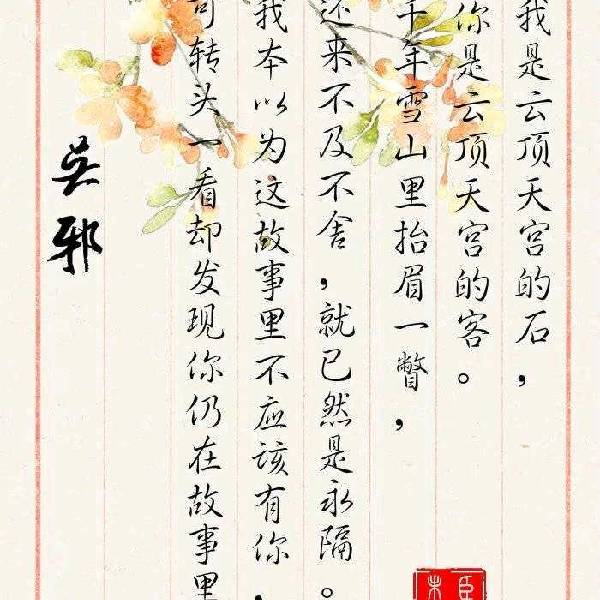 我是云顶天宫的石，
你是云顶天宫的客。
千年雪山里抬眉一瞥，
还来不及不舍，就已然是永隔。
我本以为这故事里不应该有你，
可转头一看却发现你仍在故事里
吴邪